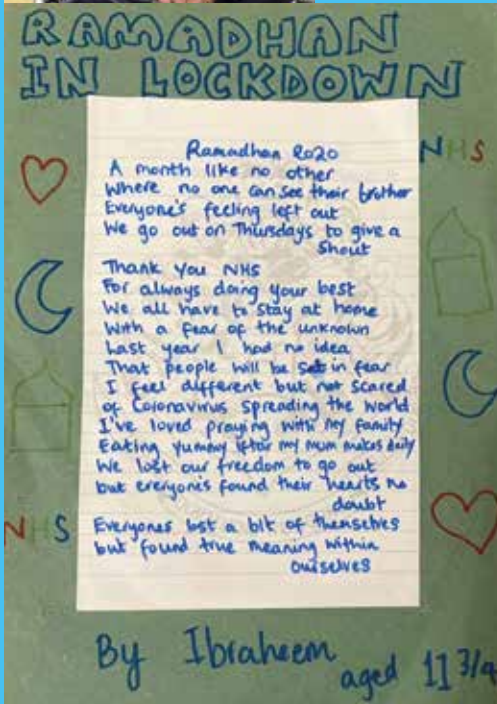 RAMADHAN
IN LOCKDOWN
NHS
Ramadhan 2020
A month like no other
Where no one can see their brother
Everyone's feeling left out
We go out on Thursdays to give a
shout
Thank you NHS
For always doing your best
We all have to stay at home
With a fear of the unknown
Last year I had no idea
That people will be set in fear
I feel different but not scared
of Coronavirus spreading the world
I've loved praying with my family
Eating yummy iftar my mum makes daily
We lost our freedom to go out
but everyone's found their hearts no
doubt
Everyones lost a bit of themselves
but found true meaning within
ourselves
NHS
By Ibraheem
aged 11 3/4